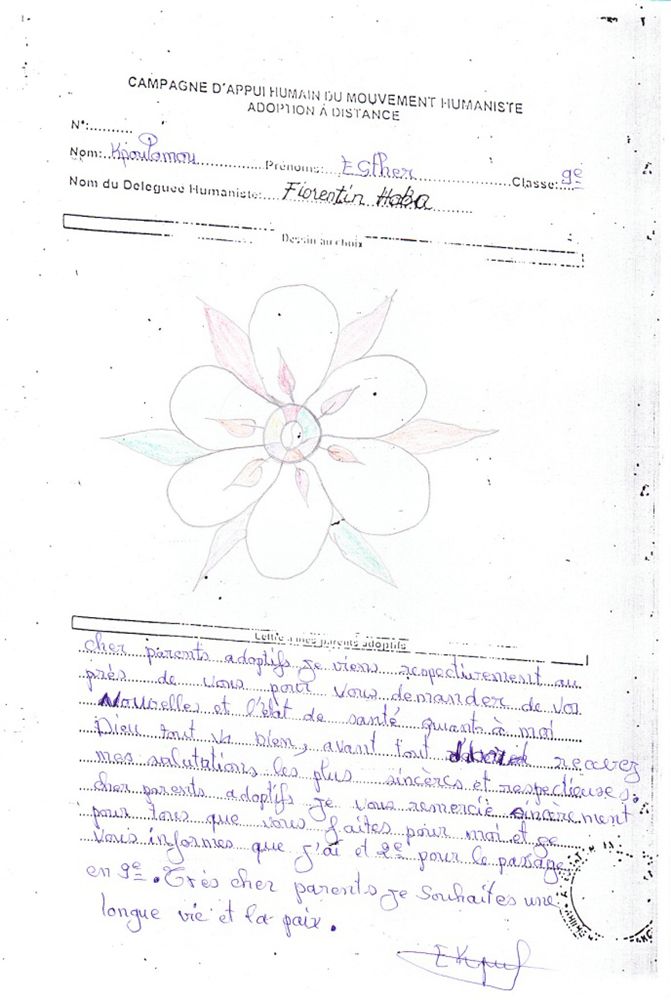 CAMPAGNE D'APPUI HUMAIN DU MOUVEMENT HUMANISTE
ADOPTION À DISTANCE
N°:..........
Nom: Kpoulomou Prénoms: ESther Classe: 9e
Nom du Deleguée Humaniste: Florentin Haba
Dessin au choix
Lettre à mes parents adoptifs
cher parents adoptifs je viens respectivement au
près de vous pour vous demander de vos
Nouvelles et l'état de santé quant à moi
Dieu tout va bien, avant tout recevez
mes salutations les plus sincères et respectieuses.
cher parents adoptifs je vous remercie sincèrement
pour tous que vous faites pour moi et je
vous informes que j'ai et 2e pour le passage
en 9e. Très cher parents je souhaites une
longue vie et la paix.